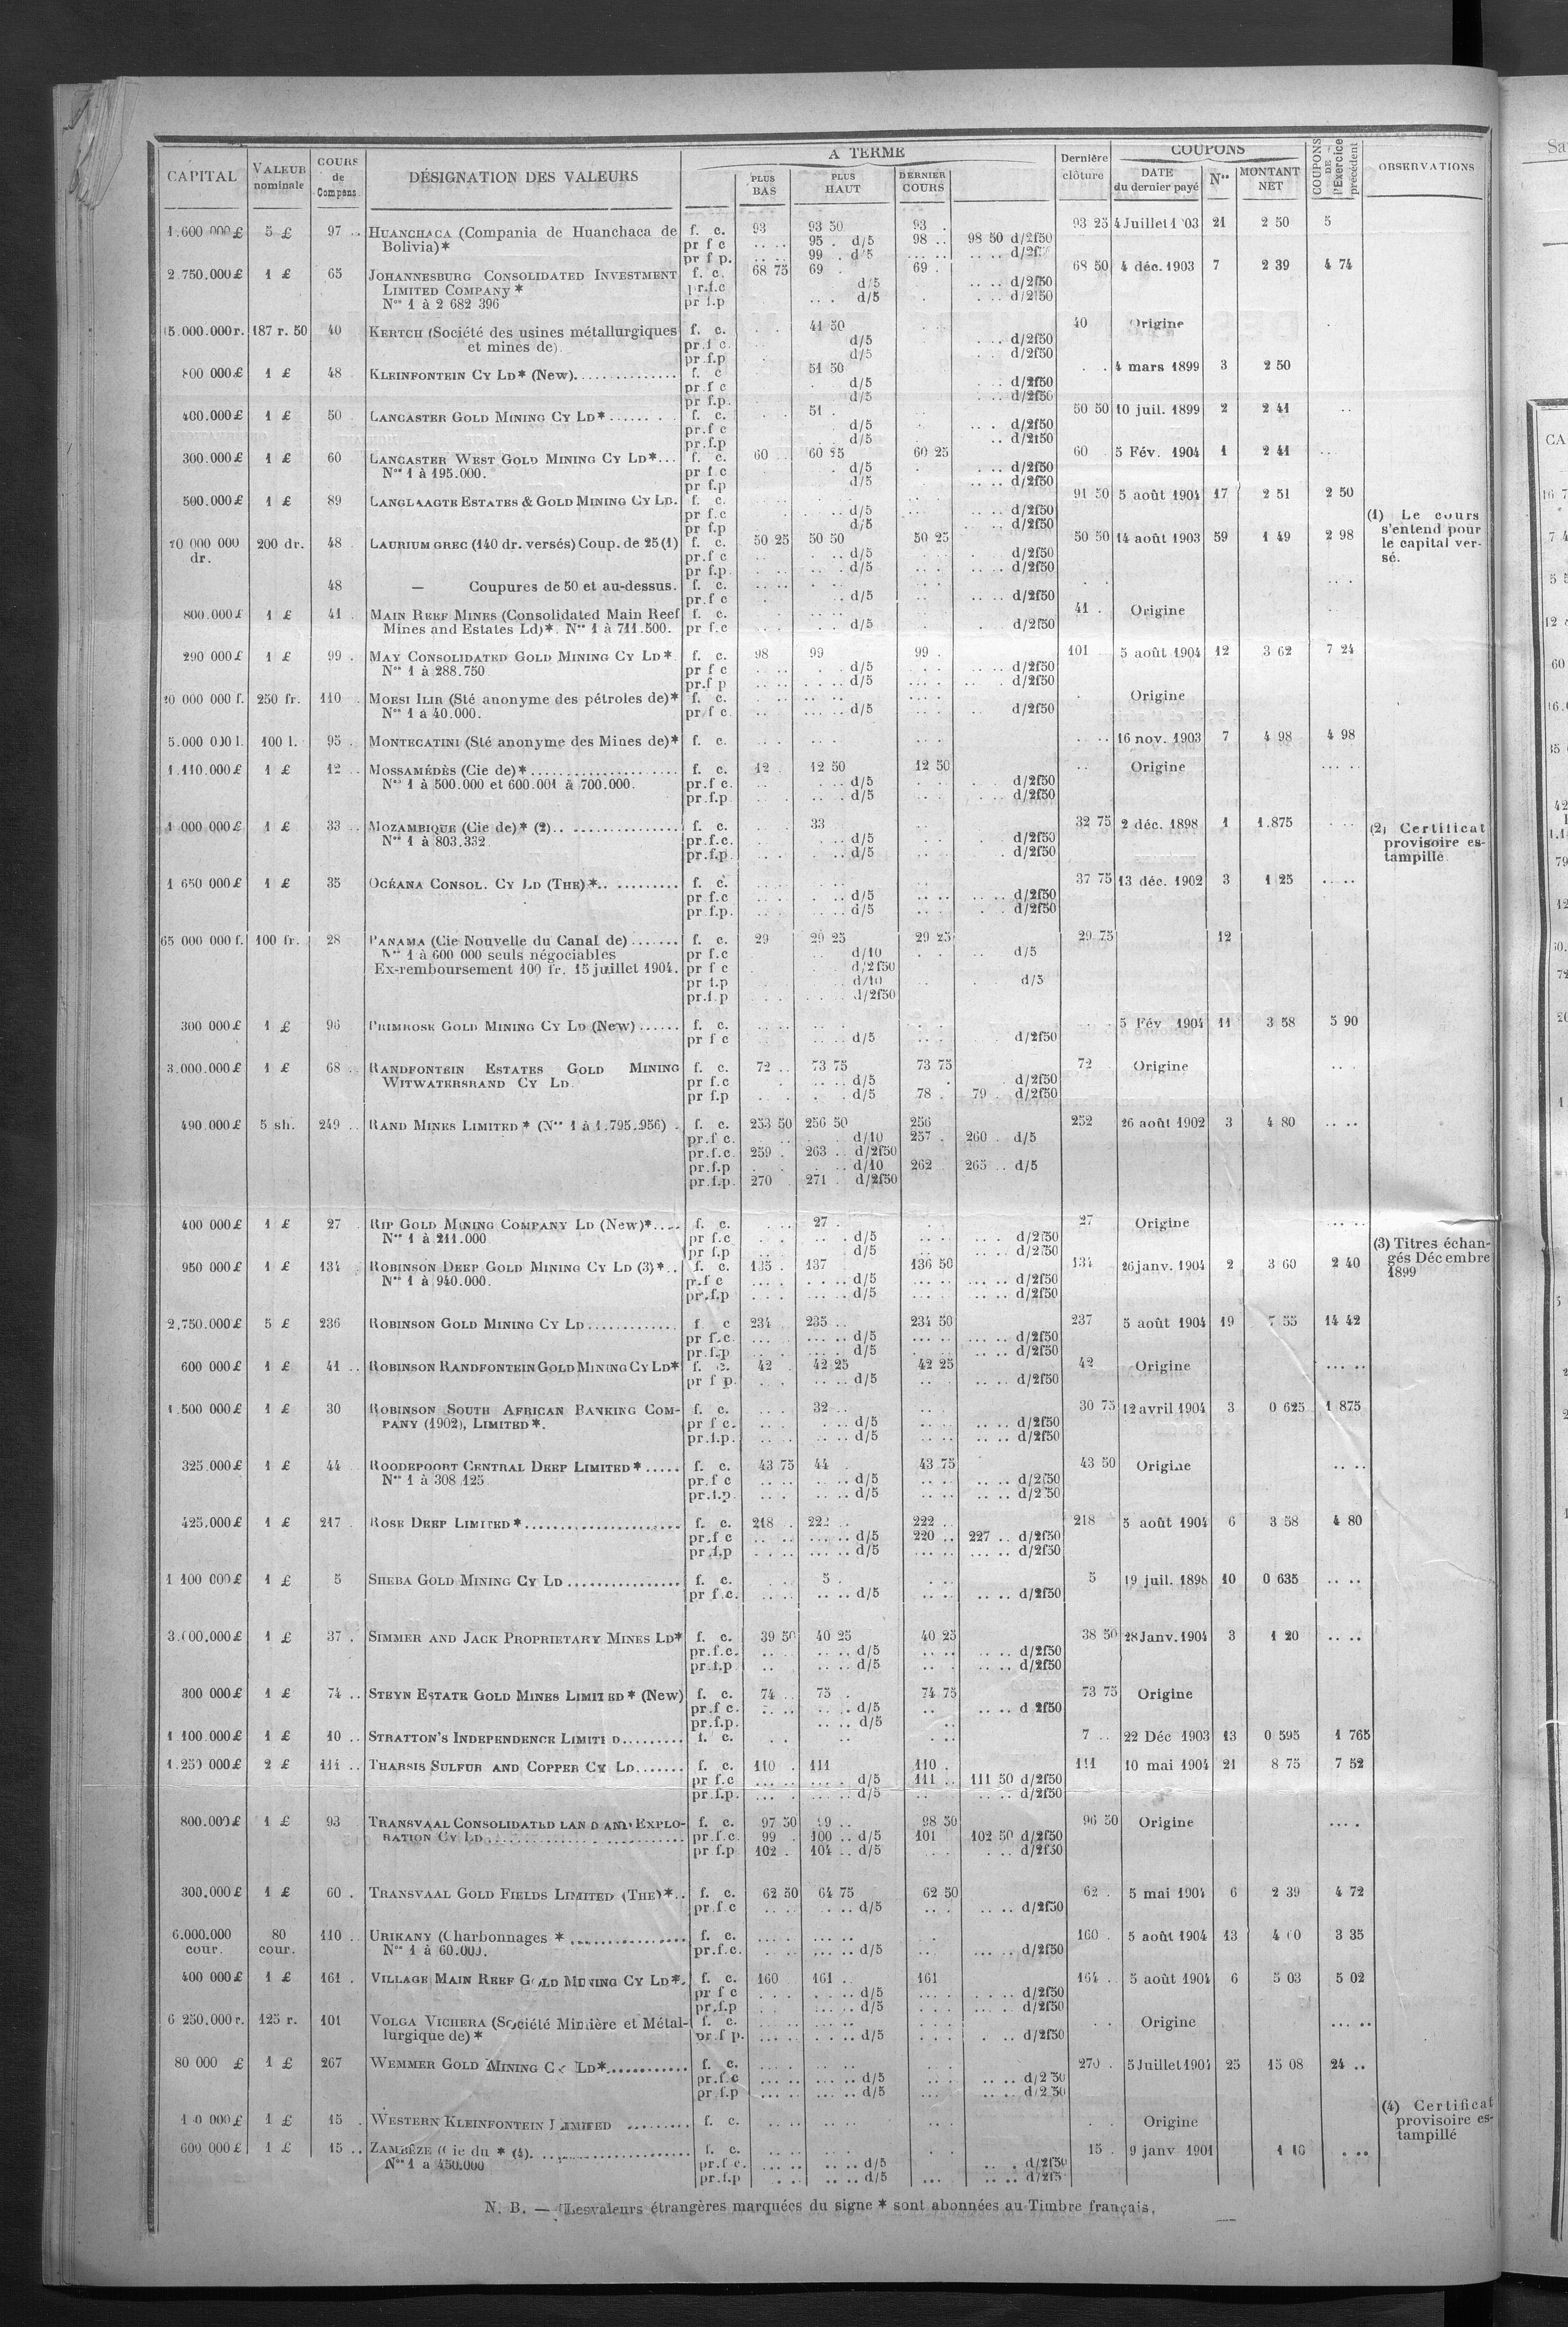 CAPITAL | VALEUR nominale | COURS de Compens | DÉSIGNATION DES VALEURS | A TERME | PLUS BAS | PLUS HAUT | DERNIER COURS | Dernière clôture | COUPONS | DATE du dernier payé | Nos | MONTANT NET | COUPONS DE l'Exercice précédent | OBSERVATIONS
1.600 000 £ 5 £ 97 .. HUANCHACA (Compania de Huanchaca de f. c. 93 93 50 93 . 93 25 4 Juillet 21 2 50 5
Bolivia)* pr f c .. .. 95 . d/5 98 .. 98 50 d/2f50
pr f p. 99 . d/5
2.750.000£ 1 £ 65 JOHANNESBURG CONSOLIDATED INVESTMENT f. c. 68 75 69 . 69 . 68 50 4 déc. 1903 7 2 39 4 74
LIMITED COMPANY * pr.f.c d/5 d/2f50
Nos 1 à 2 682 396 pr f.p d/5 d/2f50
15.000.000r. 187 r. 50 40 KERTCH (Société des usines métallurgiques f. c. 41 50 40 Origine
et mines de) pr.f c. d/5 d/2f50
pr f.p d/5 d/2f50
800 000£ 1 £ 48 KLEINFONTEIN CY LD* (New). f. c 51 50 4 mars 1899 3 2 50
pr f c d/5 d/2f50
pr f.p. d/5 d/2f50
400.000£ 1 £ 50 LANCASTER GOLD MINING CY LD* f. c. 51 . 50 50 10 juil. 1899 2 2 41
pr.f c d/5 d/2f50
pr.f.p d/5 d/2f50
300.000£ 1 £ 60 LANCASTER WEST GOLD MINING CY LD* f. c. 60 60 25 60 25 60 5 Fév. 1904 1 2 41
Nos 1 à 195.000. pr f c d/5 d/2f50
pr f.p d/5 d/2f50
500.000£ 1 £ 89 LANGLAAGTE ESTATES & GOLD MINING CY LD. f. c. 91 50 5 août 1904 17 2 51 2 50
pr f.c d/5 d/2f50 (1) Le cours
pr f.p d/5 d/2f50 s'entend pour
000 000 200 dr. 48 LAURIUM GREC (140 dr. versés) Coup. de 25 (1) f. c. 50 25 50 50 50 25 50 50 14 août 1903 59 1 49 2 98 le capital ver-
dr. pr.f c d/5 d/2f50 sé.
pr f.p. d/5 d/2f50
48 — Coupures de 50 et au-dessus. f. c.
pr.f c d/5 d/2f50
800.000£ 1 £ 41 MAIN REEF MINES (Consolidated Main Reef f. c. 41 . Origine
Mines and Estates Ld)*. Nos 1 à 711.500. pr f.c d/5 d/2f50
290 000£ 1 £ 99 . MAY CONSOLIDATED GOLD MINING CY LD* f. c. 98 99 99 . 101 5 août 1904 12 3 62 7 24
Nos 1 à 288.750 pr f c d/5 d/2f50
pr.f p d/5 d/2f50
000 000 f. 250 fr. 110 MORSI ILIR (Sté anonyme des pétroles de)* f. c. Origine
Nos 1 à 40.000. pr f c d/5 d/2f50
5.000 000 l. 100 l. 95 . MONTECATINI (Sté anonyme des Mines de)* f. c. 16 nov. 1903 7 4 98 4 98
1.110.000£ 1 £ 12 MOSSAMÉDÈS (Cie de)* f. c. 12 . 12 50 12 50 Origine
Nos 1 à 500.000 et 600.001 à 700.000. pr.f c. d/5 d/2f50
pr.f.p d/5 d/2f50
1 000 000£ 1 £ 33 MOZAMBIQUE (Cie de)* (2) f. c. 33 32 75 2 déc. 1898 1 1.875 (2) Certificat
Nos 1 à 803.332 pr.f.c. d/5 d/2f50 provisoire es-
pr.f.p. d/5 d/2f50 tampillé
1 650 000£ 1 £ 35 OCÉANA CONSOL. CY LD (THE)* f. c. 37 75 13 déc. 1902 3 1 25
pr f.c d/5 d/2f50
pr f.p. d/5 d/2f50
65 000 000 f. 100 fr. 28 PANAMA (Cie Nouvelle du Canal de) f. c. 29 29 25 29 25 29 75 12
Nos 1 à 600 000 seuls négociables pr f.c d/10 d/5
Ex-remboursement 100 fr. 15 juillet 1904. pr f c d/2f50
pr f.p d/10 d/5
pr.f.p d/2f50
300 000£ 1 £ 96 PRIMROSE GOLD MINING CY LD (New) f. c. 5 Fév 1904 11 3 58 5 90
pr f c d/5 d/2f50
3.000.000£ 1 £ 68 RANDFONTEIN ESTATES GOLD MINING f. c. 72 .. 73 75 73 75 72 Origine
WITWATERSRAND CY LD pr f.c d/5 d/2f50
pr f.p d/5 78 . 79 . d/2f50
490.000£ 5 sh. 249 RAND MINES LIMITED * (Nos 1 à 1.795.956) f. c. 253 50 256 50 256 252 26 août 1902 3 4 80
pr.f c. d/10 257 . 260 . d/5
pr.f.c. 259 . 263 .. d/2f50
pr.f.p d/10 262 265 .. d/5
pr.f.p. 270 271 . d/2f50
400 000£ 1 £ 27 RIP GOLD MINING COMPANY LD (New)* f. c. 27 . 27 Origine
Nos 1 à 211.000 pr f.c d/5 d/2f50
pr f.p d/5 d/2f50 (3) Titres échan-
950 000£ 1 £ 134 ROBINSON DEEP GOLD MINING CY LD (3)* f. c. 135 . 137 136 50 134 26 janv. 1904 2 3 60 2 40 gés Décembre
Nos 1 à 940.000. pr.f c d/5 d/2f50 1899
pr.f.p d/5 d/2f50
2,750.000£ 5 £ 236 ROBINSON GOLD MINING CY LD f. c 234 235 .. 234 50 237 5 août 1904 19 7 55 14 42
pr f.c. d/5 d/2f50
pr.f.p d/5 d/2f50
600 000£ 1 £ 41 .. ROBINSON RANDFONTEIN GOLD MINING CY LD* f. c. 42 . 42 25 42 25 42 Origine
pr f p. d/5 d/2f50
1.500 000£ 1 £ 30 ROBINSON SOUTH AFRICAN BANKING COM- f. c. 32 .. 30 75 12 avril 1904 3 0 625 1 875
PANY (1902), LIMITED *. pr f c. d/5 d/2f50
pr.f.p. d/5 d/2f50
325.000£ 1 £ 44 ROODEPOORT CENTRAL DEEP LIMITED * f. c. 43 75 44 . 43 75 43 50 Origine
Nos 1 à 308 125 pr.f c d/5 d/2f50
pr.f.p. d/5 d/2f50
425.000£ 1 £ 217 ROSE DEEP LIMITED * f. c. 218 . 222 .. 222 .. 218 5 août 1904 6 3 58 4 80
pr.f c d/5 220 .. 227 .. d/2f50
pr.f.p d/5 d/2f50
1 100 000£ 1 £ 5 SHEBA GOLD MINING CY LD f. c. 5 . 5 19 juil. 1898 10 0 635
pr f.c. d/5 d/2f50
3.000.000£ 1 £ 37 . SIMMER AND JACK PROPRIETARY MINES LD* f. c. 39 50 40 25 40 25 38 50 28 Janv. 1904 3 1 20
pr.f.c. d/5 d/2f50
pr.f.p d/5 d/2f50
300 000£ 1 £ 74 .. STEYN ESTATE GOLD MINES LIMITED * (New) f. c. 74 75 . 74 75 73 75 Origine
pr.f c. d/5 d 2f50
pr.f.p. d/5
1 100.000£ 1 £ 10 .. STRATTON'S INDEPENDENCE LIMITED f. c. 7 .. 22 Déc 1903 13 0 595 1 765
1.250 000£ 2 £ 111 .. THARSIS SULFUR AND COPPER CY LD f. c. 110 . 111 110 . 111 10 mai 1904 21 8 75 7 52
pr f.c d/5 111 .. 111 50 d/2f50
pr.f.p. d/5 d/2f50
800.000£ 1 £ 93 TRANSVAAL CONSOLIDATED LAND AND EXPLO- f. c. 97 50 99 .. 98 50 96 50 Origine
RATION CY LD pr.f.c. 99 . 100 .. d/5 101 102 50 d/2f50
pr f.p 102 . 104 .. d/5 d/2f50
300.000£ 1 £ 60 . TRANSVAAL GOLD FIELDS LIMITED (THE)* f. c. 62 50 64 75 62 50 62 . 5 mai 1904 6 2 39 4 72
pr.f c d/5 d/2f50
6.000.000 80 110 .. URIKANY (Charbonnages * f. c. 160 . 5 août 1904 13 4 3 35
cour. cour. Nos 1 à 60.000. pr.f.c. d/5 d/2f50
400 000£ 1 £ 161 . VILLAGE MAIN REEF GOLD MINING CY LD*. f. c. 160 161 .. 161 164 .. 5 août 1904 6 5 03 5 02
pr f c d/5 d/2f50
pr.f.p d/5 d/2f50
6 250.000 r. 125 r. 101 VOLGA VICHERA (Société Minière et Métal- f. c. Origine
lurgique de)* pr.f p. d/5 d/2f50
80 000 £ 1 £ 267 WEMMER GOLD MINING CY LD* f. c. 270 . 5 Juillet 1904 25 15 08 24 ..
pr.f c d/5 d/2 50
pr f.p d/5 d/2 50
£ 1 £ 15 . WESTERN KLEINFONTEIN LIMITED f. c. Origine (4) Certificat
provisoire es-
600 000£ 1 £ 15 .. ZAMBÈZE (Cie du * (4). f. c. 15 . 9 janv 1901 tampillé
Nos 1 à 450.000 pr.f c. d/5 d/2f50
pr.f.p d/5 d/2f5
N. B. — Les valeurs étrangères marquées du signe * sont abonnées au Timbre français,